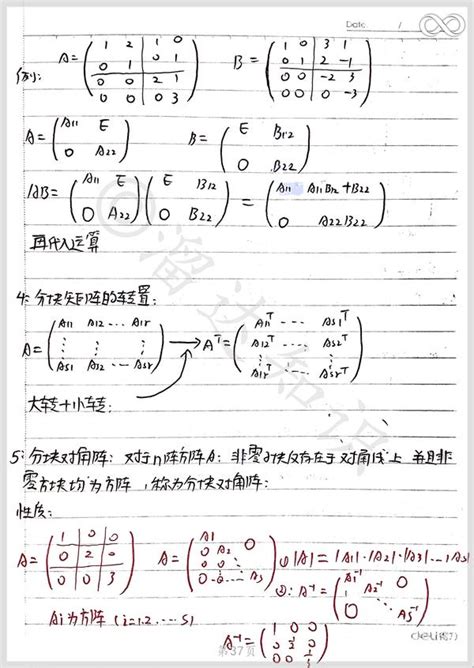 Date: /
例: A = ( 1 2 1 0 ; 0 1 0 1 ; 0 0 2 1 ; 0 0 0 3 ) B = ( 1 0 3 1 ; 0 1 2 -1 ; 0 0 -2 3 ; 0 0 0 -3 )
A = ( A11 E ; 0 A22 ) B = ( E B12 ; 0 B22 )
AB = ( A11 E ; 0 A22 ) ( E B12 ; 0 B22 ) = ( A11 A11B12+B22 ; 0 A22B22 )
再代入运算
4: 分块矩阵的转置:
A = ( A11 A12 ... A1r ; ⋮ ⋮ ⋮ ; AS1 A12 ... ASr ) → A^T = ( A11^T ---- AS1^T ; A12^T ---- AS2^T ; ⋮ ⋮ ; A1r^T ---- ASr^T )
大转+小转:
5: 分块对角阵: 对于n阵方阵A: 非零子块仅存在于对角线上 并且非
零方块均为方阵, 称为分块对角阵:
性质:
A = ( 1 0 0 ; 0 2 0 ; 0 0 3 ) A = ( A1 ; 0 A2 0 ; 0 0 ⋱ ; 0 0 ... As ) ① |A| = |A1|·|A2|·|A3|...|As|
②: A^-1 = ( A1^-1 0 ; A2^-1 ; 0 ⋱ As^-1 )
Ai为方阵 (i=1.2. ... S)
A^-1 =
第37页
deli
溜达知识